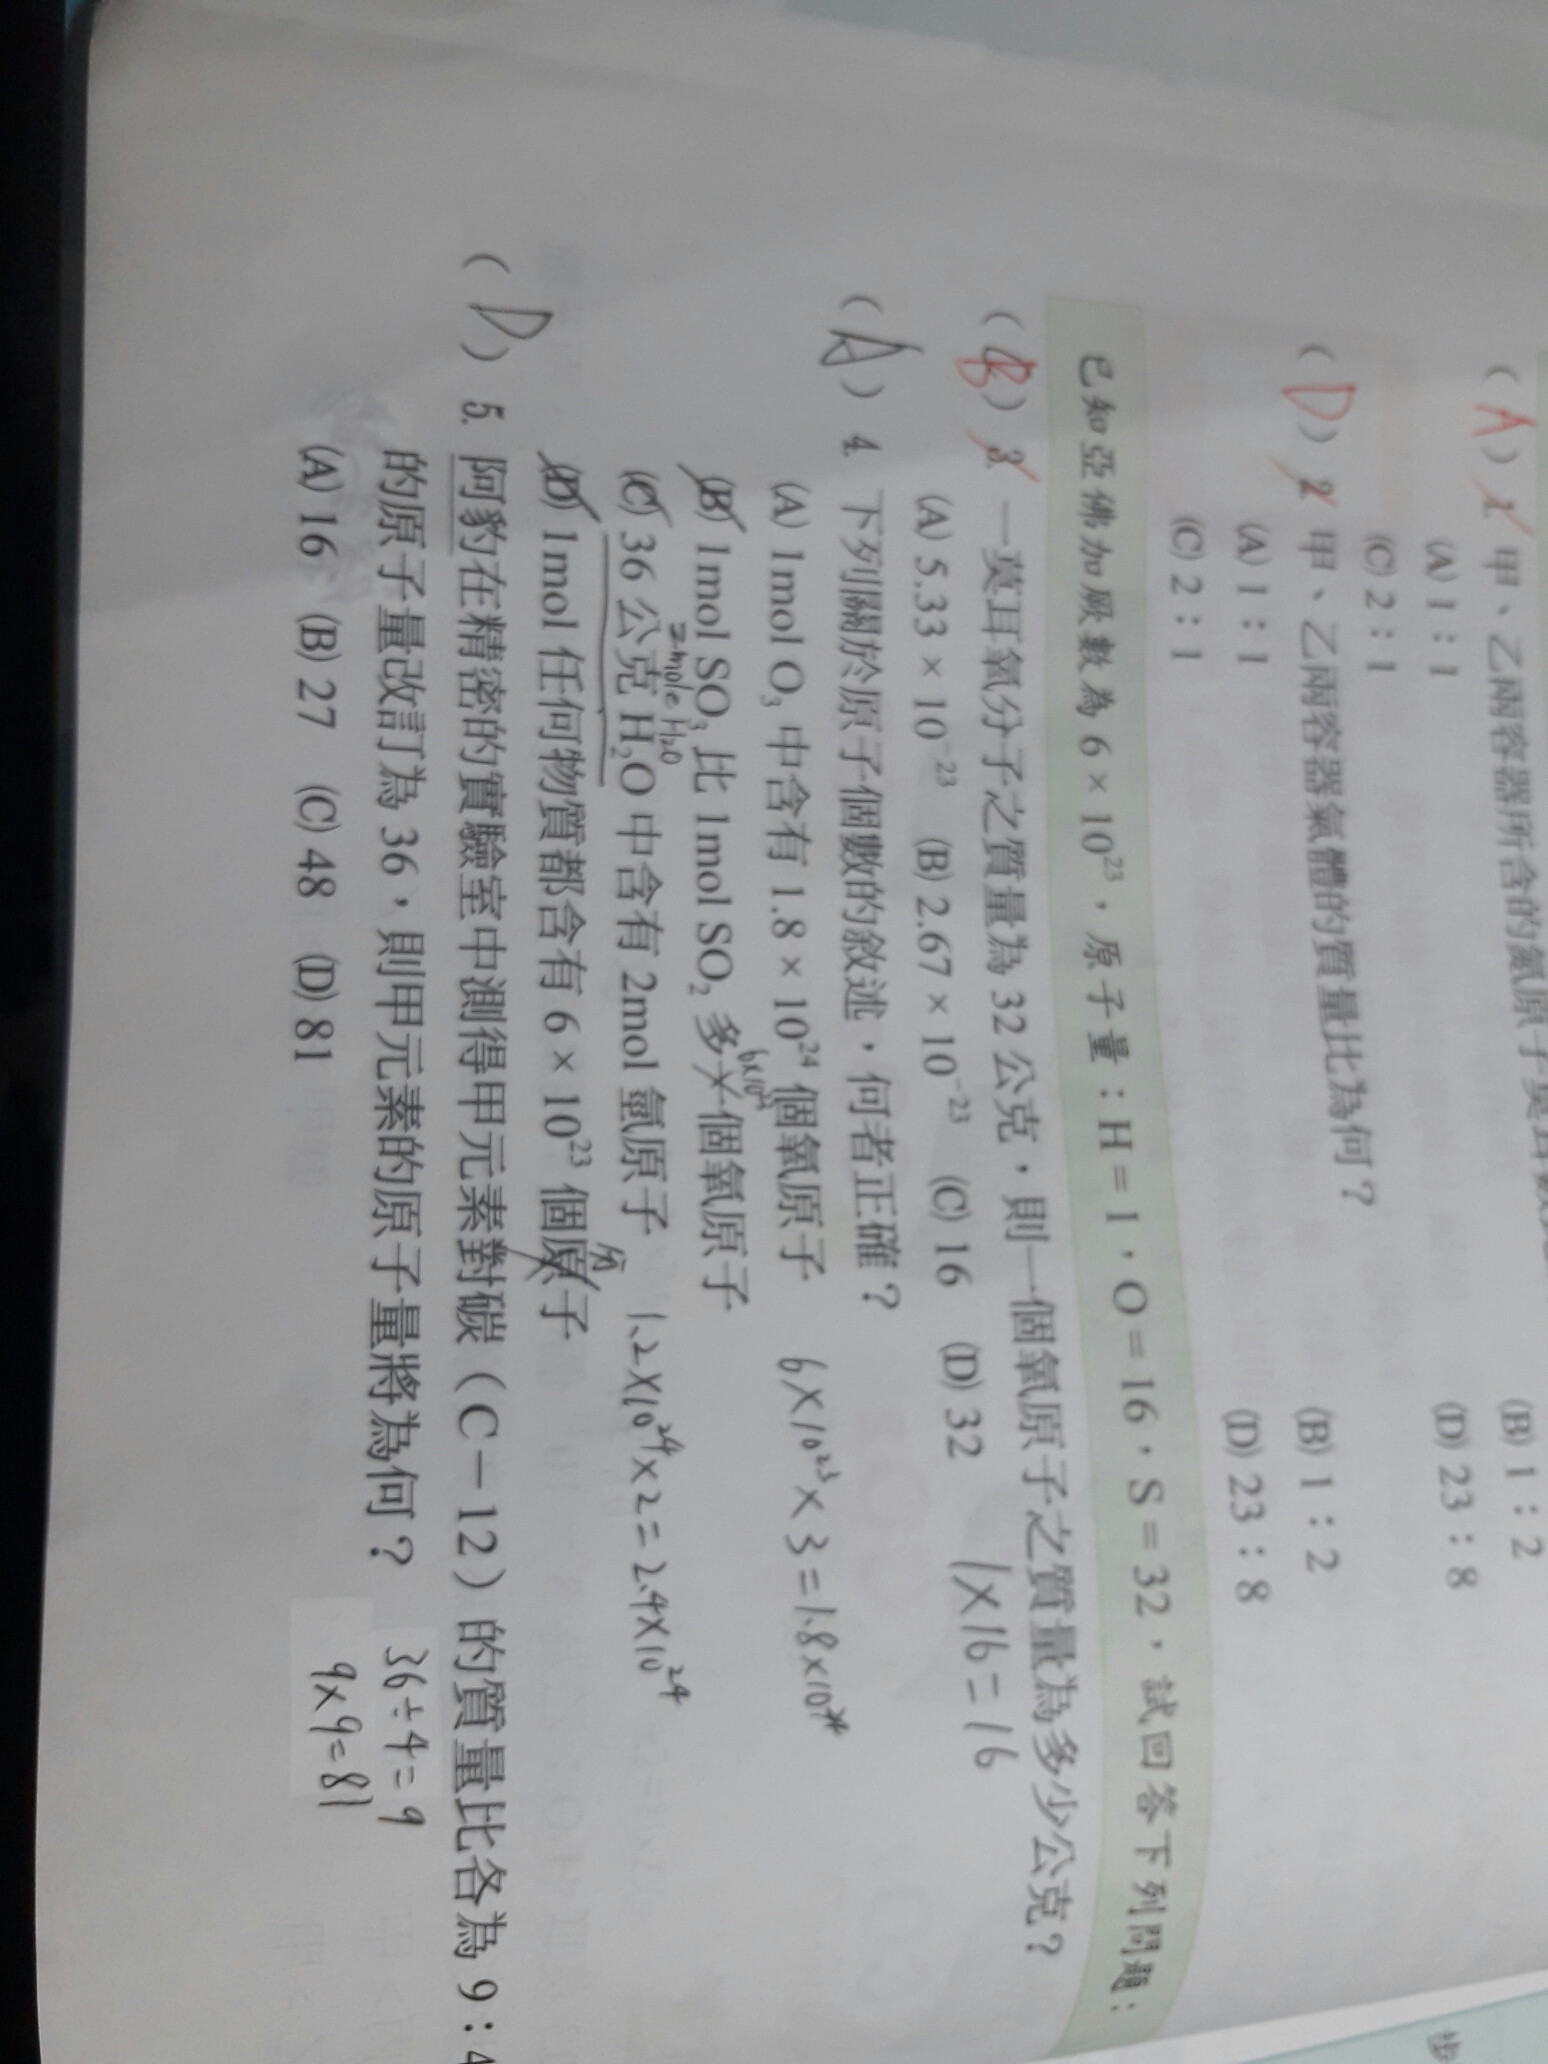 (A) 1. 甲、乙兩容器所含的氮原子莫耳數
(A) 1:1 (B) 1:2
(C) 2:1 (D) 23:8
(D) 2. 甲、乙兩容器氣體的質量比為何?
(A) 1:1 (B) 1:2
(C) 2:1 (D) 23:8
已知亞佛加厥數為 6×10²³,原子量:H=1,O=16,S=32,試回答下列問題:
(B) 3. 一莫耳氧分子之質量為 32 公克,則一個氧原子之質量為多少公克?
(A) 5.33×10⁻²³ (B) 2.67×10⁻²³ (C) 16 (D) 32 1×16=16
(A) 4. 下列關於原子個數的敘述,何者正確?
(A) 1mol O₃ 中含有 1.8×10²⁴ 個氧原子 6×10²³×3=1.8×10²⁴
6×10²³
(B) 1mol SO₃ 比 1mol SO₂ 多一個氧原子
2mole H₂O
(C) 36 公克 H₂O 中含有 2mol 氫原子 1.2×10²⁴×2=2.4×10²⁴
分
(D) 1mol 任何物質都含有 6×10²³ 個原子
(D) 5. 阿豹在精密的實驗室中測得甲元素對碳(C-12)的質量比各為 9:4
的原子量改訂為 36,則甲元素的原子量將為何? 36÷4=9
(A) 16 (B) 27 (C) 48 (D) 81 9×9=81